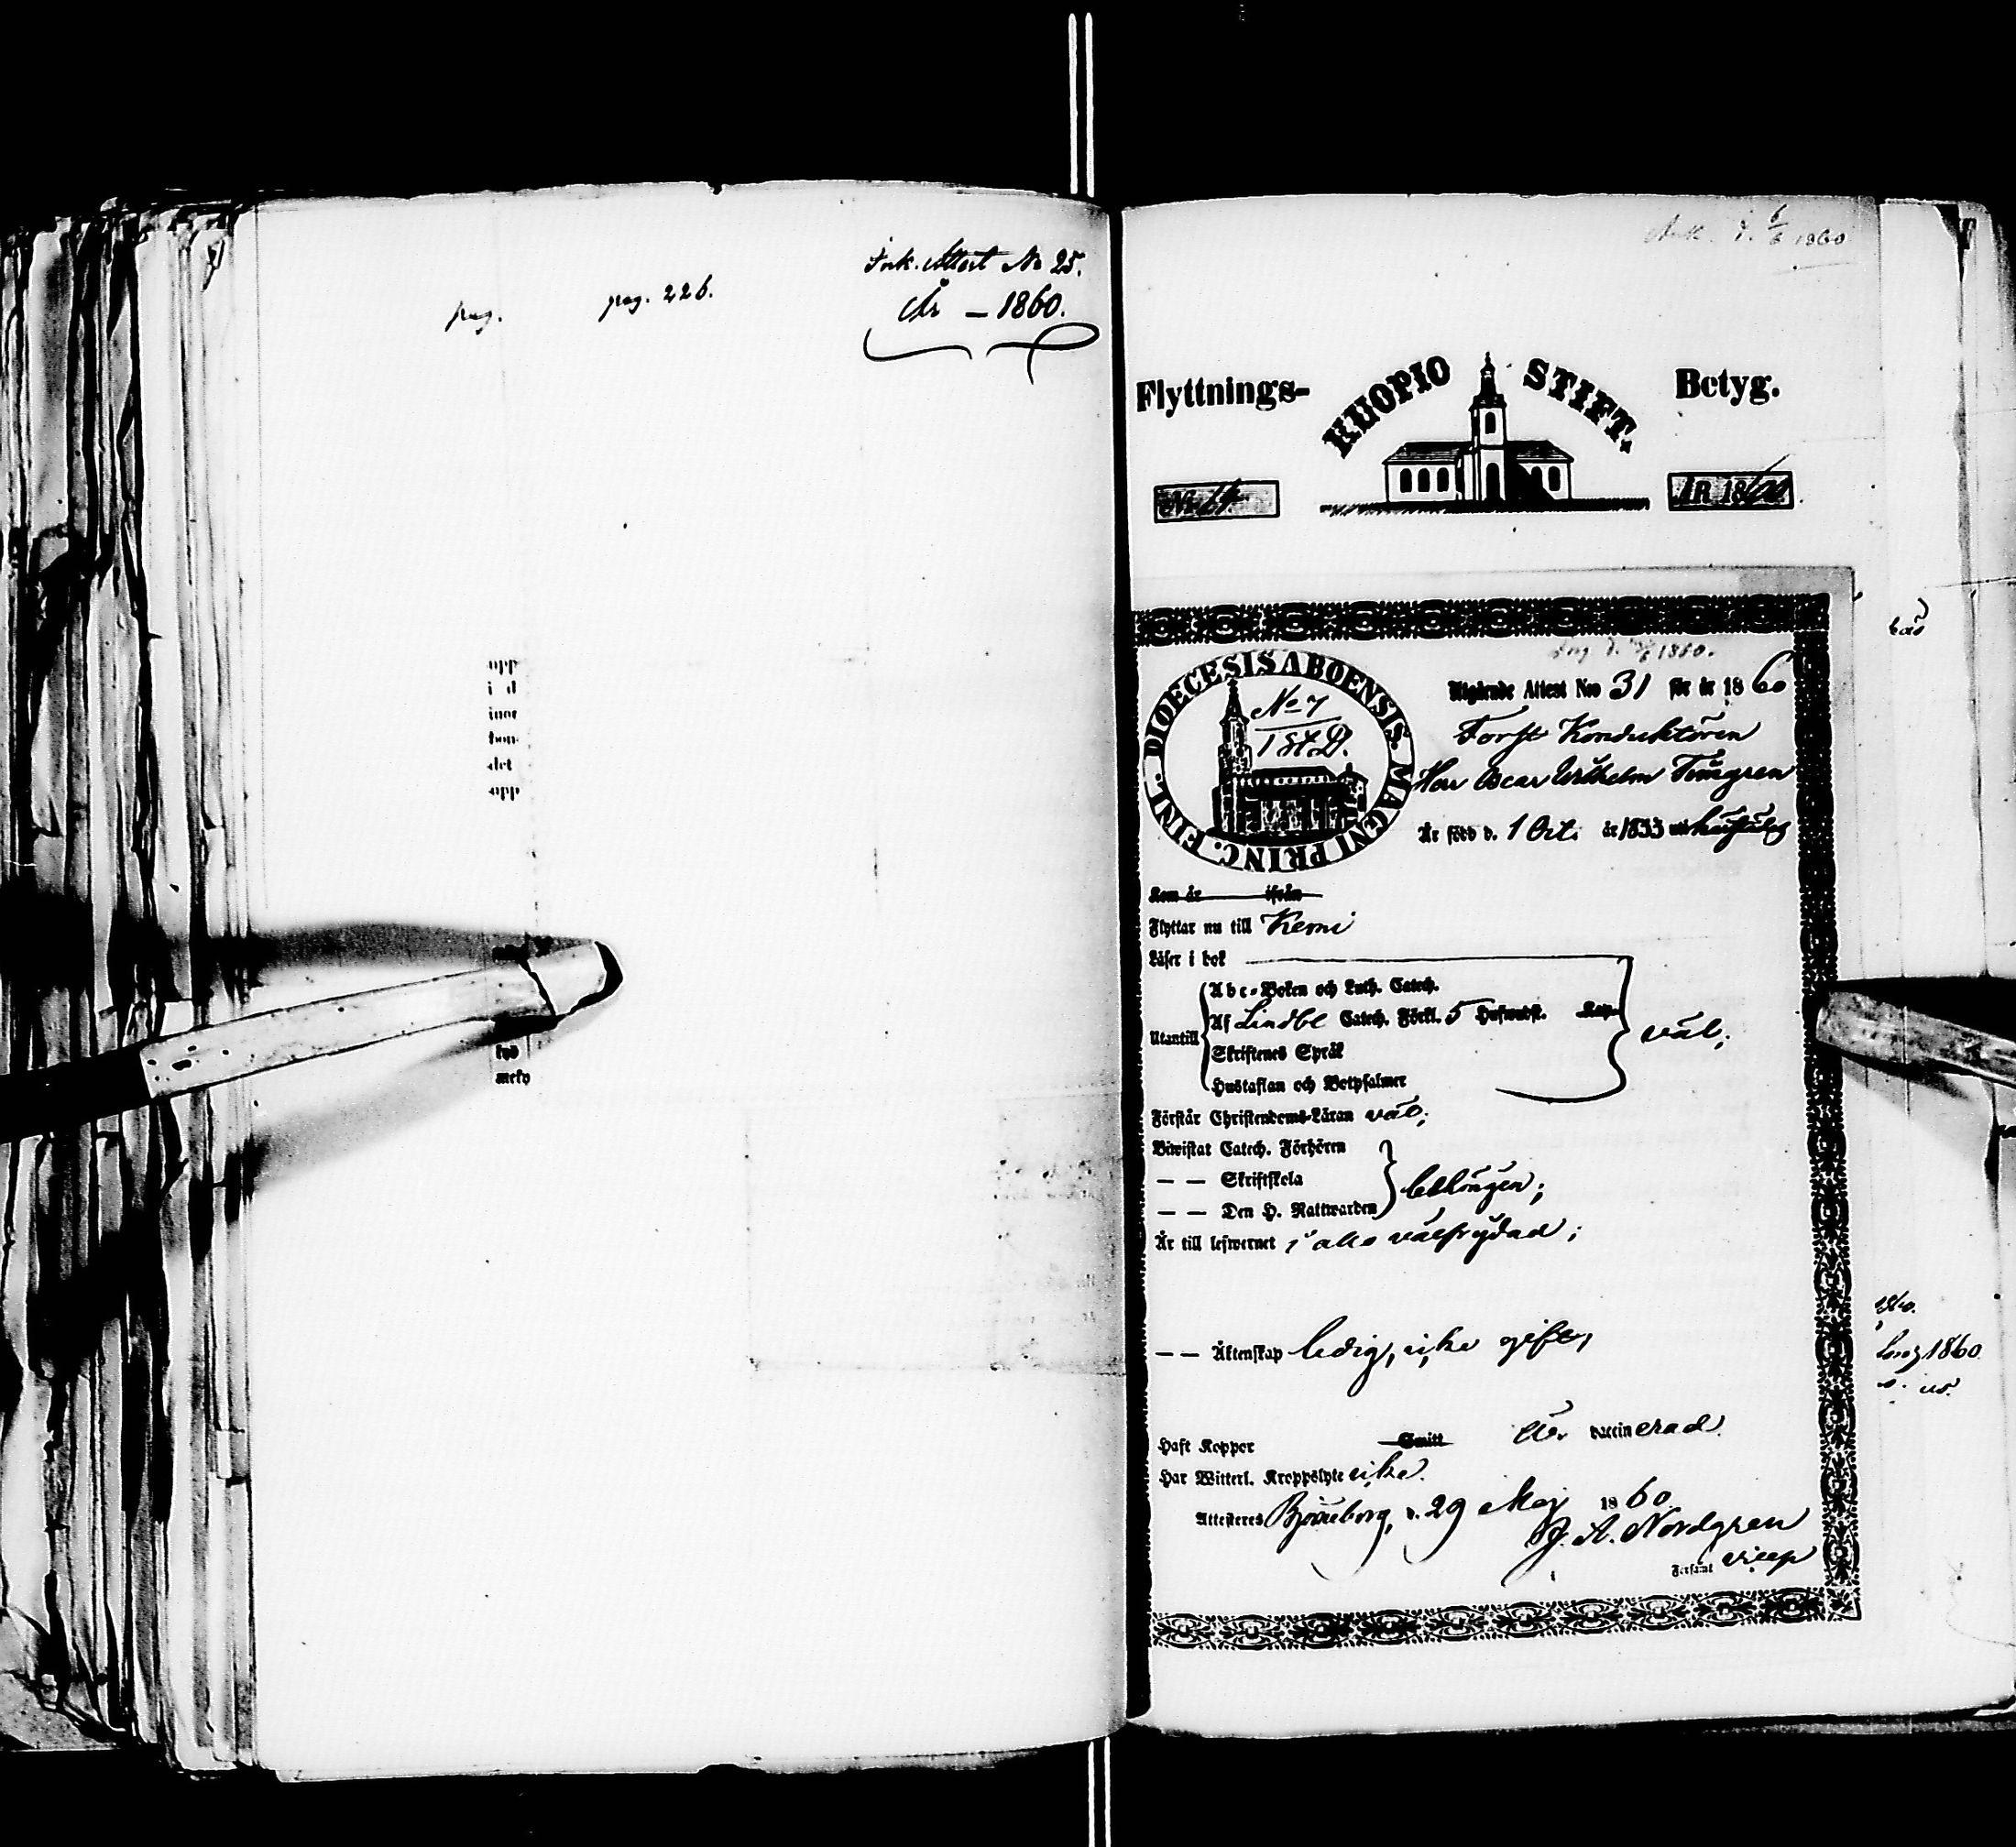 Ink. Attest No 25.
År – 1860.
pag. pag. 226.
opp
i d
det
opp
Ank. d. 6/6 1860
Flyttnings- KUOPIO STIFT. Betyg.
ÅR 1860
bas
Utgående Attest Nro 31 för år 1860
DIOECESIS ABOENSIS. MAGNI PRINC. FINL.
No 7
1 St. D.
Forst Konduktören
Herr Oscar Wilhelm
Är född d. 1 Oct. år 1833 uti
Kom år ifrån
Flyttar nu till Kemi
Läser i bok
Utantill
Abc-Boken och Luth. Catech.
Af Lindbl Catech. Förkl. 5 Hufwudst. Kap.
Skriftenes Språk
Hustaflan och Botpsalmer
väl;
Förstår Christendoms-Läran väl;
Biwistat Catech. Förhören
— — Skriftskola
— — Den H. Nattwarden
behörigen;
Är till lefwernet i allo välfrejdad;
— — Äktenskap ledig, icke gift,
1860.
1860
Haft Koppor Smitt Är vaccinerad.
Har Witterl. Kroppslyte icke.
Attesteras Björneborg, d. 29 Maj 1860
J. A. Nordgren
Församl vicep